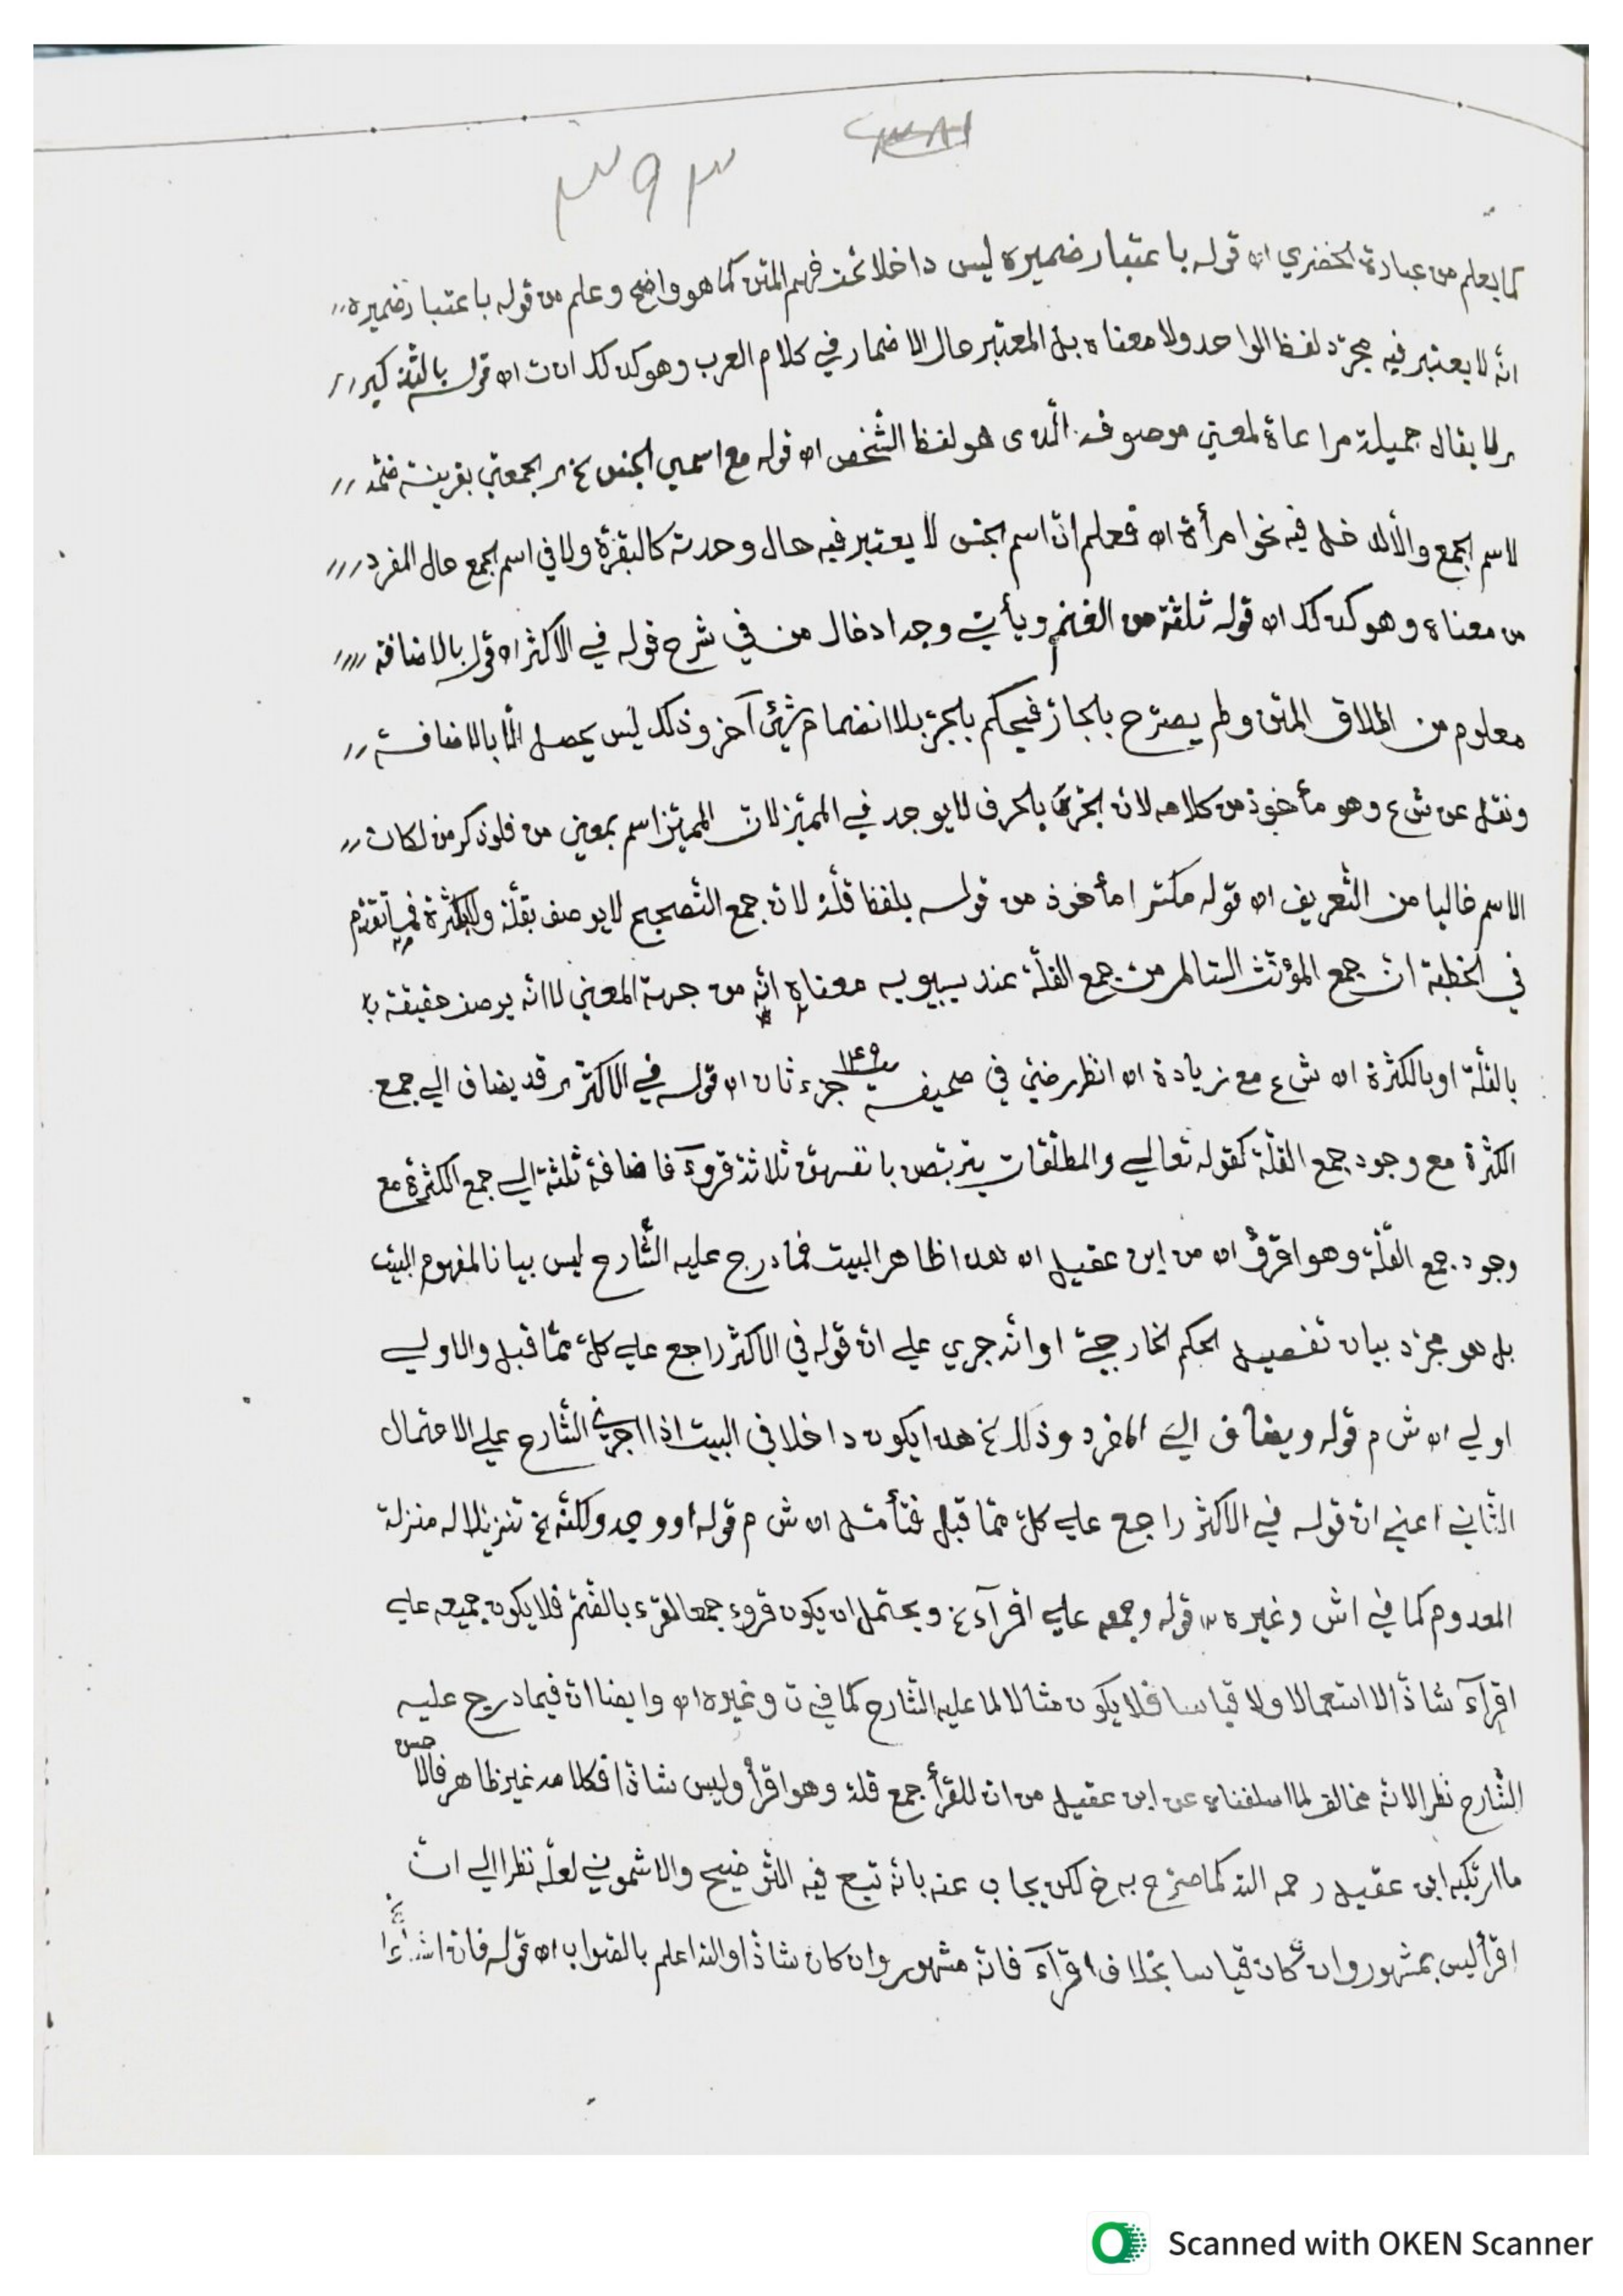 ٣٩٣
كما يعلم من عبارة الخضري اه قوله باعتبار ضميره ليس داخلا تحت فهم المتن كما هو واضح وعلم من قوله باعتبار ضميره
انّه لا يعتبر فيه مجرّد لفظ الواحد ولا معناه بل المعتبر حال الاضمار في كلام العرب وهو كذلك ان ت اه قوله بالتّذكير
لا يقال جميلة مراعاة لمعني موصوفه الّذى هو لفظ الشّخص اه قوله مع اسمي الجنس الجمعيّ بقرينة ضمّه
لاسم الجمع والّا لدخل فيه نحو امرأة اه فعلم انّ اسم الجنس لا يعتبر فيه حال وحدته كالبقرة ولا في اسم الجمع حال المفرد
من معناه وهو كذلك اه قوله ثلثة من الغنم ويأتي وجه ادخال من في شرح قوله في الاكثر اه قوله بالاضافة
معلوم من اطلاق المتن ولم يصرّح بالجارّ فيحكم بالجرّ بلا انضمام شيئ آخر وذلك ليس يحصل الّا بالاضافة
ونقل عن ش ع وهو مأخوذ من كلامه لان الجرّ بالحرف لا يوجد في المميّز لانّ المميّز اسم بمعني من فلو ذكر من لكان
الاسم خاليا من التّعريف اه قوله مكسّرا مأخوذ من قوله بلفظ قلّة لان جمع التّصحيح لا يوصف بقلّة ولا بكثرة فما تقدّم
في الخطبة انّ جمع المؤنّث السّالم من جمع القلّة عند سيبويه معناه انّه من جهة المعني لا انّه يوصف حقيقة
بالقلّة او بالكثرة اه ش ع مع زيادة اه انظر رضيّ في صحيفة ١٤٩ جزء ثان اه قوله في الاكثر قد يضاف الي جمع
الكثرة مع وجود جمع القلّة كقوله تعالي والمطلّقات يتربّصن بانفسهنّ ثلاثة قروء فاضافة ثلثة الي جمع الكثرة مع
وجود جمع القلّة وهو اقرؤ اه من ابن عقيل اه هذا ظاهر البيت فما درج عليه الشّارح ليس بيانا لمفهوم البيت
بل هو مجرّد بيان تفصيل الحكم الخارجيّ او انّه جري علي انّ قوله في الاكثر راجع علي كلّ ممّا قبل والاولي
اولي اه ش م قوله ويضاف الي المفرد وذلك الخ هذا يكون داخلا في البيت اذا اجري الشّارح علي الاحتمال
الثّاني اعني انّ قوله في الاكثر راجع علي كلّ ممّا قبل فتأمّل اه ش م قوله او وجد ولكنّه الخ تنزيلا له منزلة
المعدوم كما في اش وغيره اه قوله وجمعه علي اقرآء الخ ويحتمل ان يكون قروء جمعا لقرء بالضّمّ فلا يكون جمعه علي
اقرآء شاذّا لا استعمالا ولا قياسا فلا يكون مثالا لما عليه الشّارح كما في ت وغيره اه وايضا انّ فيما درج عليه
الشّارح نظرا لانّه مخالف لما اسلفناه عن ابن عقيل من انّ للقرأ جمع قلّة وهو اقرأ وليس شاذّا فكلامه غير ظاهر فالاحسن
ما ارتكبه ابن عقيل رحمه الله كما صرّح به خ لكن يجاب عنه بانّه تبع فيه التّوضيح والاشموني لعلّه نظرا الي انّ
اقرأ ليس بمشهور وان كان قياسا بخلاف اقرآء فانّه مشهور وان كان شاذّا والله اعلم بالصّواب اه قوله فان
Scanned with OKEN Scanner